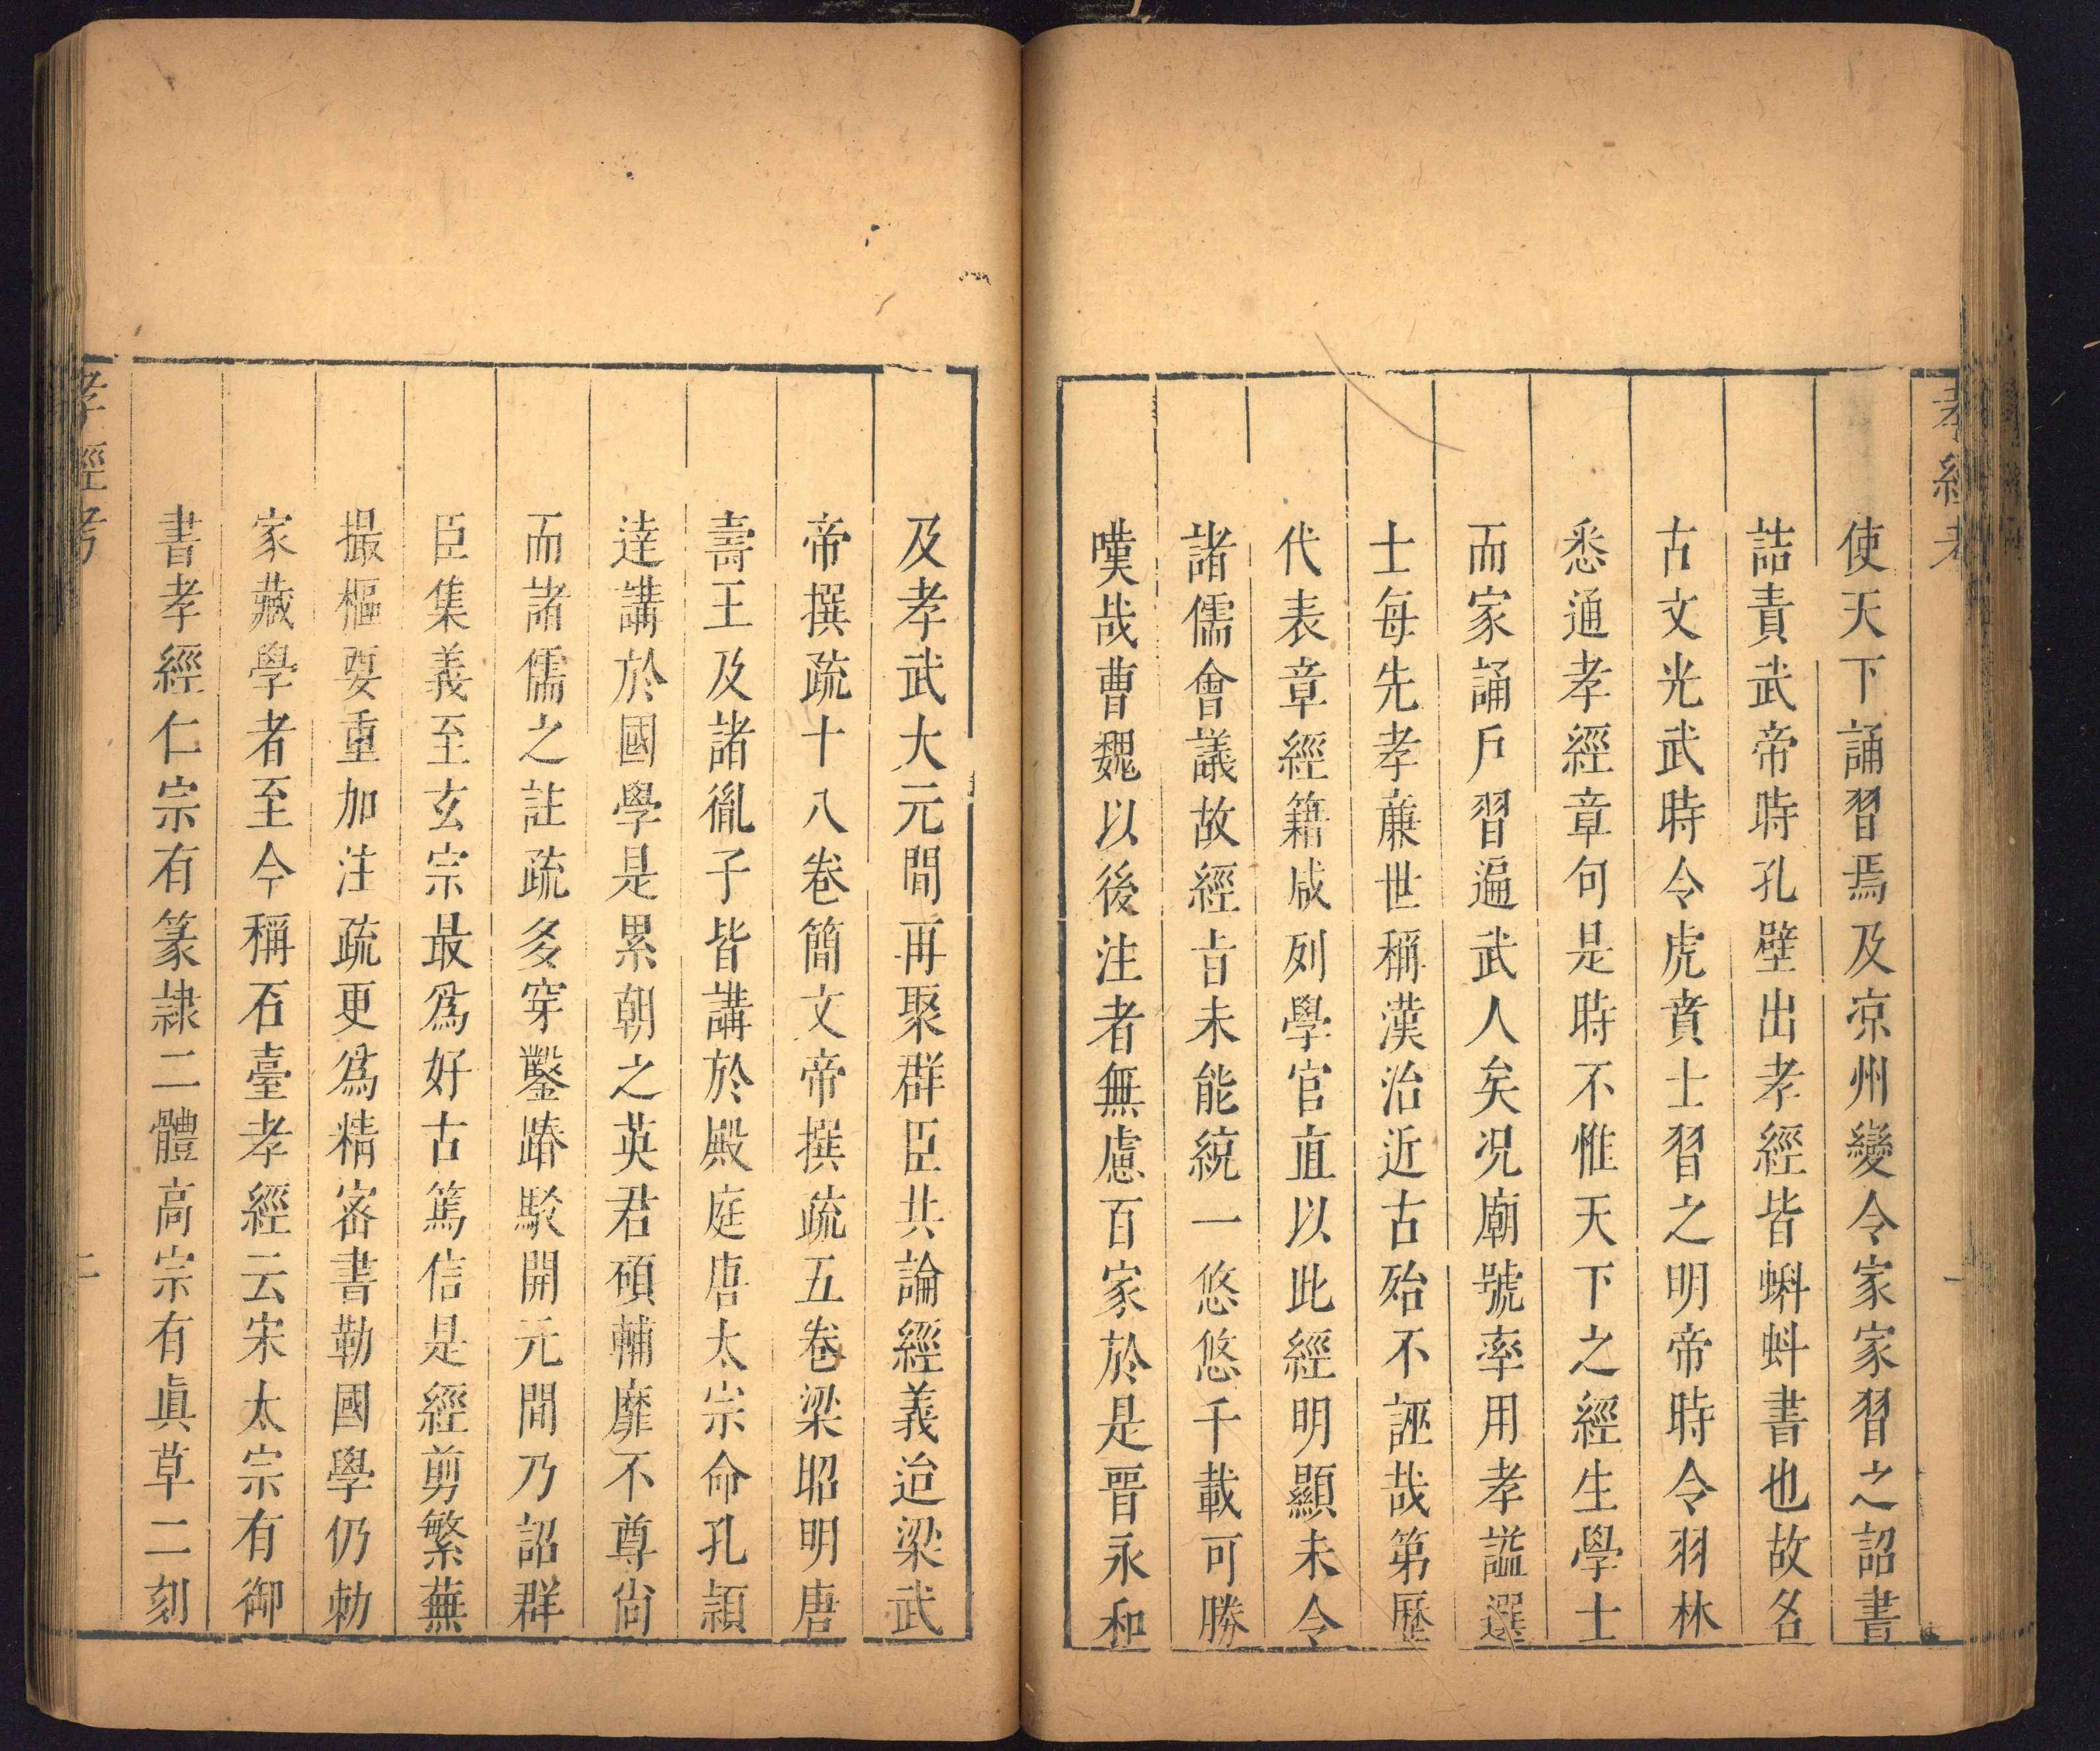 孝經考
使天下誦習焉及凉州變令家家習之詔書
詰責武帝時孔壁出孝經皆蝌蚪書也故名
古文光武時令虎賁士習之明帝時令羽林
悉通孝經章句是時不惟天下之經生學士
而家誦戶習遍武人矣况廟號率用孝謚選
士每先孝亷世稱漢治近古殆不誣哉第歷
代表章經籍咸列學官直以此經明顯未令
諸儒會議故經㫖未能統一悠悠千載可勝
嘆哉曹魏以後注者無慮百家於是晋永和
及孝武大元間再聚群臣共論經義迨梁武
帝撰疏十八卷簡文帝撰疏五卷梁昭明唐
壽王及諸胤子皆講於殿庭唐太宗命孔頴
逹講於國學是累朝之英君碩輔靡不尊尙
而諸儒之註疏多穿鑿踳駁開元間乃詔群
臣集義至玄宗最爲好古篤信是經剪繁蕪
撮樞要重加注疏更爲精審書勒國學仍勅
家藏學者至今稱石臺孝經云宋太宗有御
書孝經仁宗有篆隷二體高宗有眞草二刻
孝經考
二